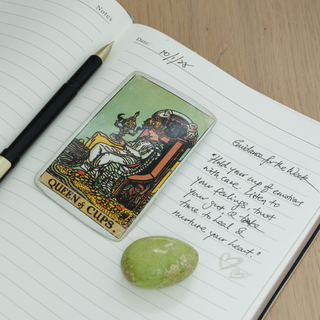 Notes
Date: 10/1/25
QUEEN of CUPS.
Guidance for the Week
"Hold your cup of emotions
with care. Listen to
your feelings, trust
your gut & take
time to heal &
nurture your heart."